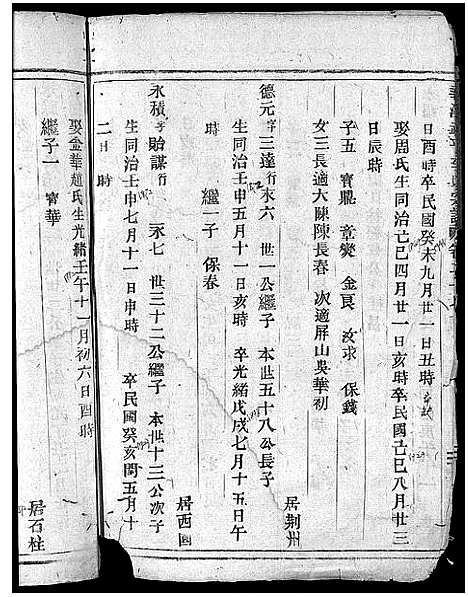 日酉時卒民國癸未九月廿一日丑時
娶周氏生同治己巳四月廿一日亥時卒民國己巳八月廿三
日辰時
子五　寶鼎　章燮　金良　汝求　保錢
女三長適大陳陳長春　次適屏山吳華初
居荆州
德元字三達行永六　世一公繼子　本世五十八公長子
生同治壬申五月十一日亥時　卒光緒戊戌七月十五日午
時　繼一子　保春
居西園
永積字貽謀行　永七　世三十二公繼子　本世十三公次子
生同治壬申七月十一日申時　卒民國癸亥閏五月十
二日時
娶金華趙氏生光緒壬午十一月初六日酉時
繼子一　寶華
居石柱